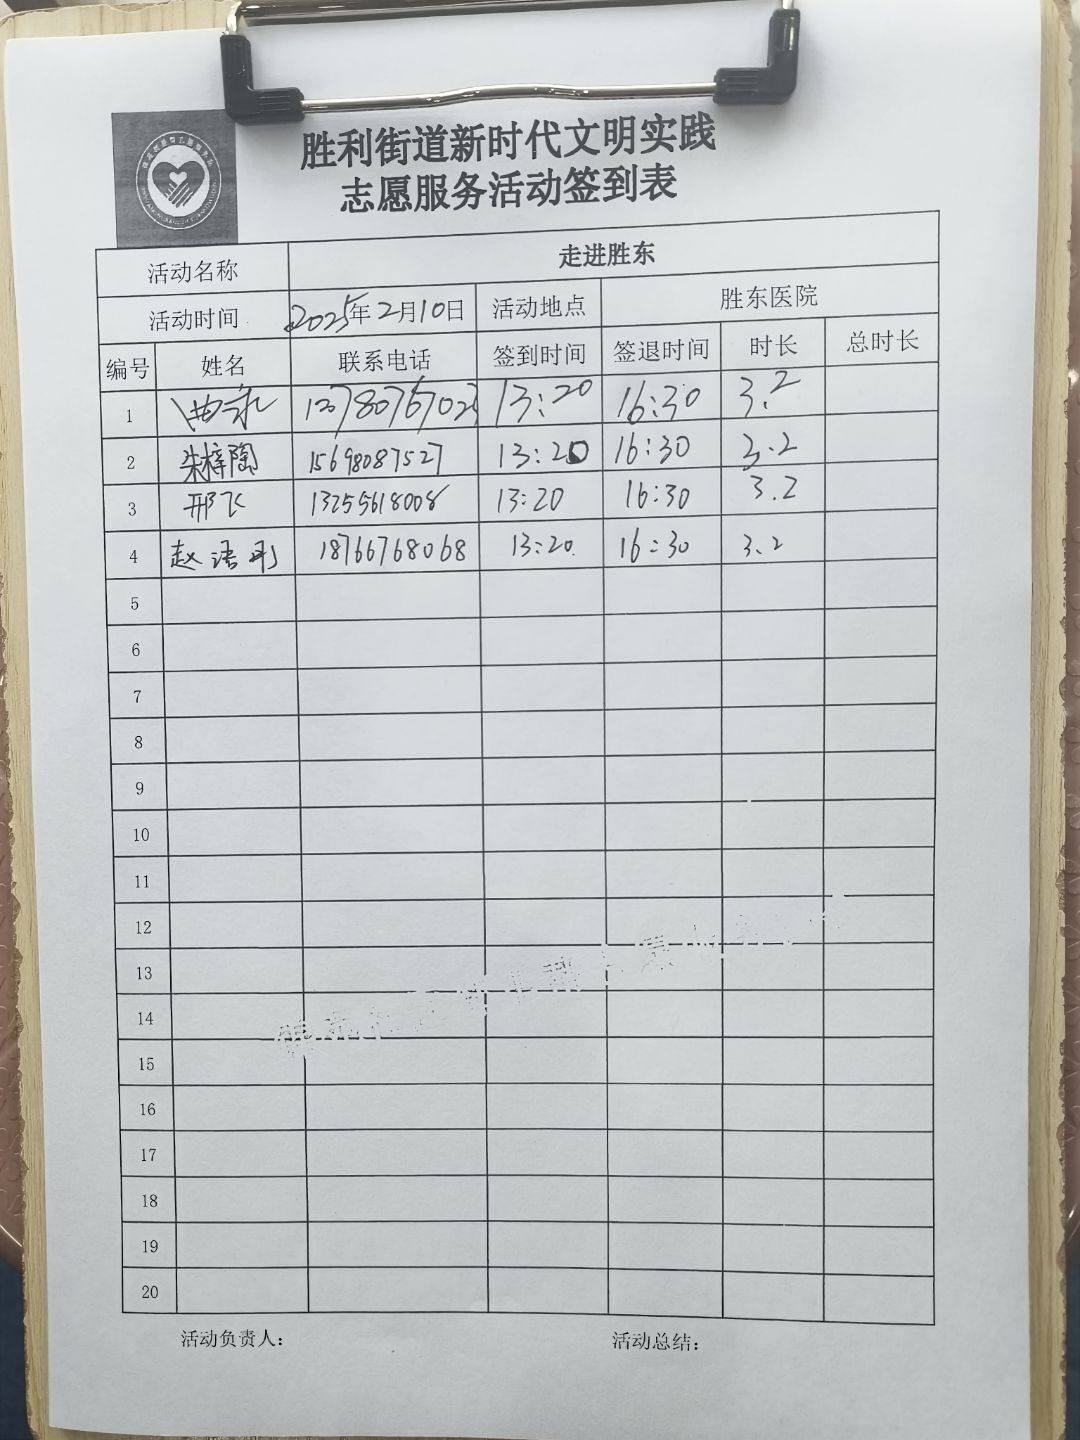 胜利街道新时代文明实践
志愿服务活动签到表
活动名称 走进胜东
活动时间 2025年2月10日 活动地点 胜东医院
编号 姓名 联系电话 签到时间 签退时间 时长 总时长
1 13:20 16:30 3.2
2 朱梓陶 15698087527 13:20 16:30 3.2
3 邢飞 13255618008 13:20 16:30 3.2
4 赵语彤 18766768068 13:20 16:30 3.2
5
6
7
8
9
10
11
12
13
14
15
16
17
18
19
20
活动负责人： 活动总结：